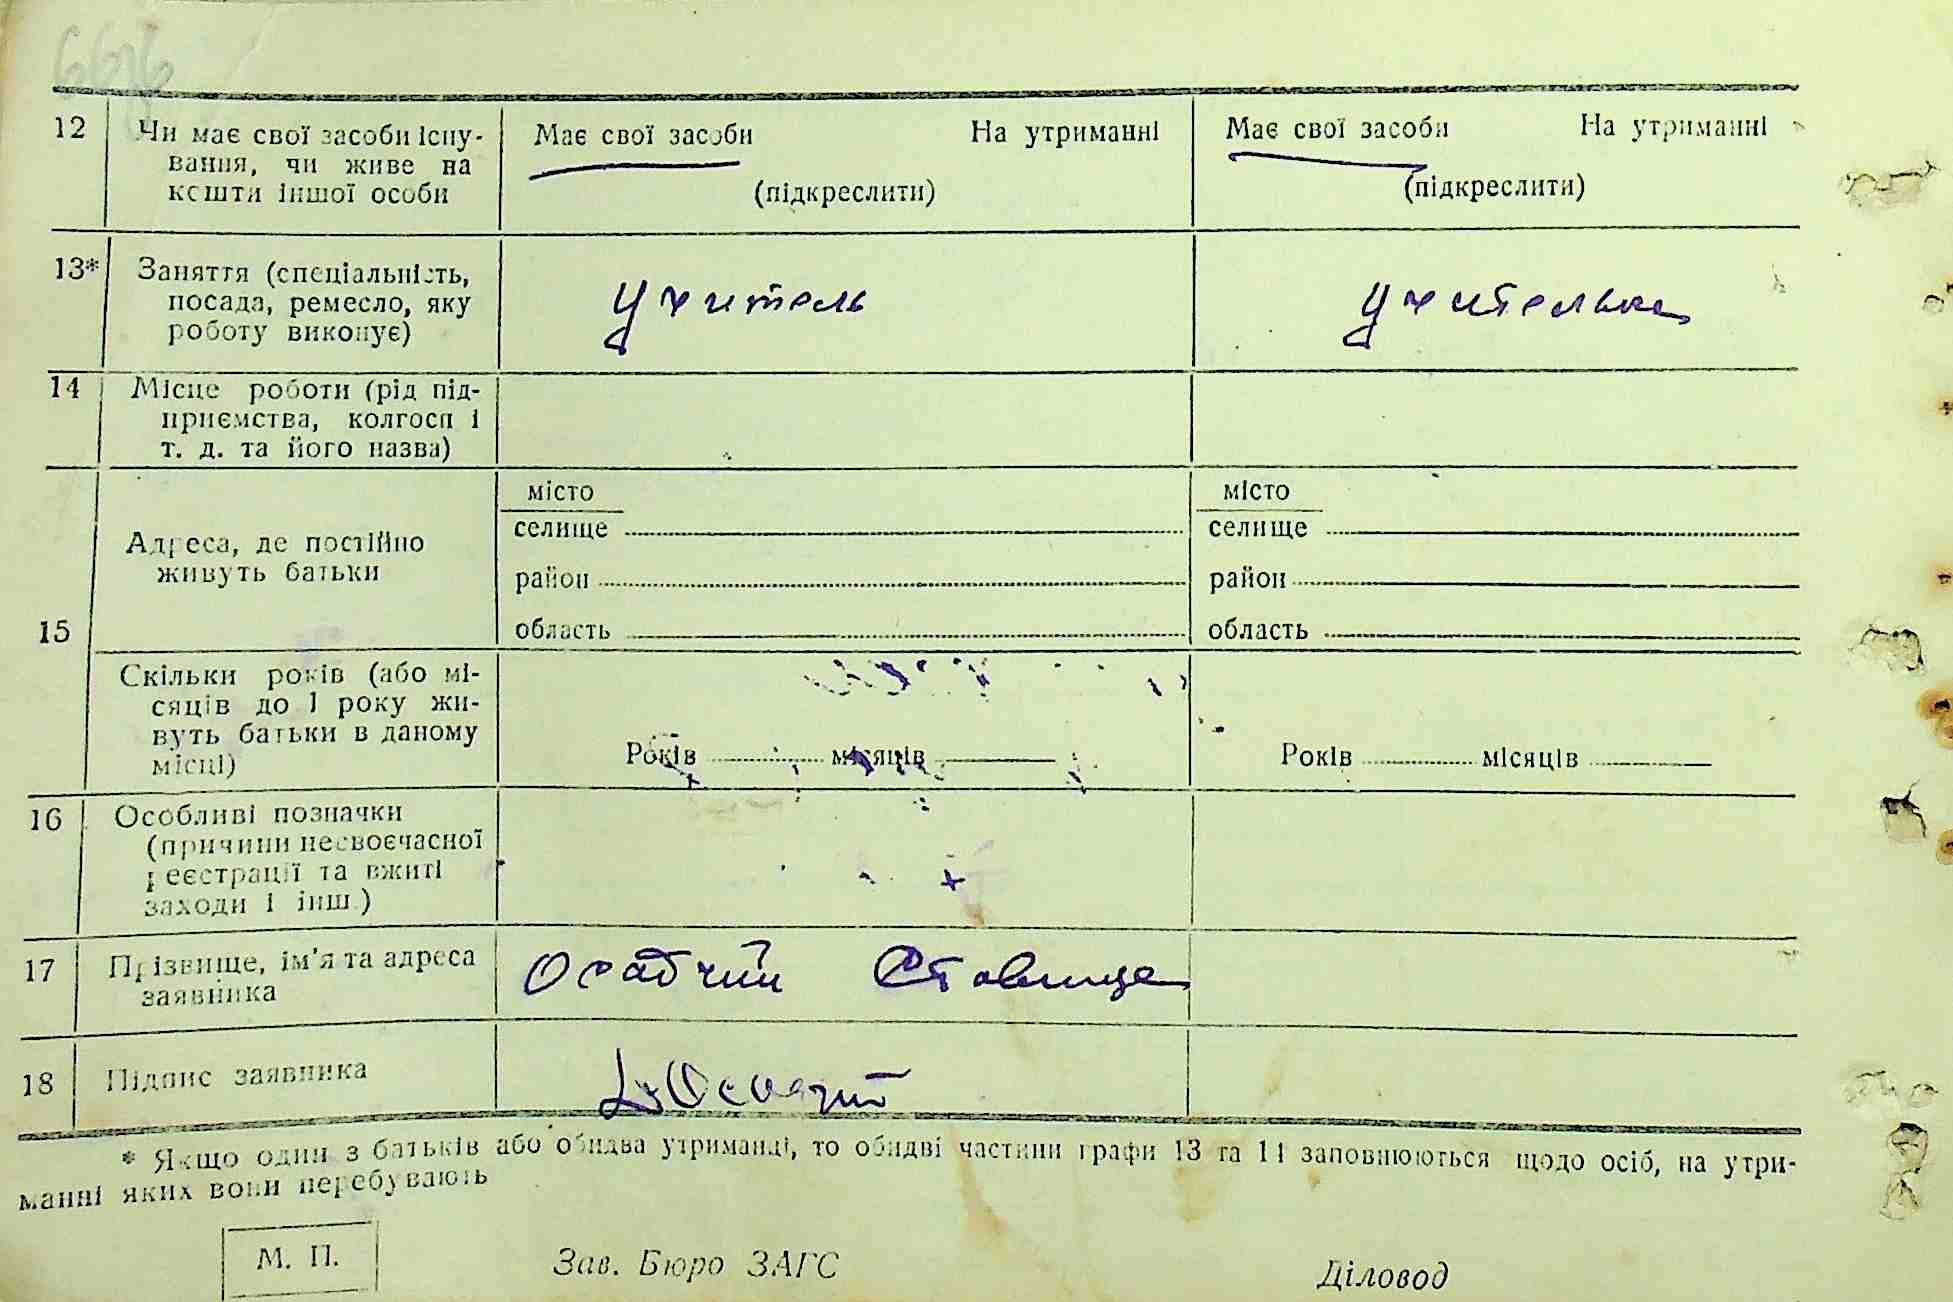 666
12 Чи має свої засоби існу- Має свої засоби На утриманні Має свої засоби На утриманні
вання, чи живе на
кошти іншої особи (підкреслити) (підкреслити)
13* Заняття (спеціальність,
посада, ремесло, яку учитель учителька
роботу виконує)
14 Місце роботи (рід під-
приємства, колгосп і
т. д. та його назва)
місто місто
селище селище
Адреса, де постійно
живуть батьки район район
15 область область
Скільки років (або мі-
сяців до 1 року жи-
вуть батьки в даному
місці) Років місяців Років місяців
16 Особливі позначки
(причини несвоєчасної
реєстрації та вжиті
заходи і інш.)
17 Прізвище, ім'я та адреса Осадчий Ставище
заявника
18 Підпис заявника
* Якщо один з батьків або обидва утриманці, то обидві частини графи 13 та 14 заповнюються щодо осіб, на утри-
манні яких вони перебувають
М. П. Зав. Бюро ЗАГС Діловод